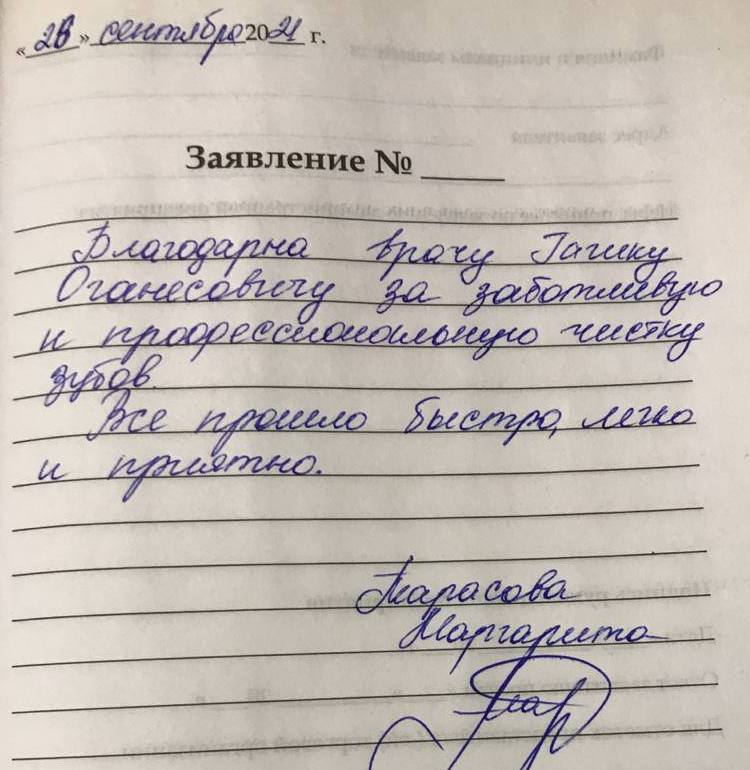 «28» сентября 2021 г.
Заявление №
Благодарна врачу Гагику
Оганесовичу за заботливую
и профессиональную чистку
зубов.
Все прошло быстро, легко
и приятно.
Тарасова
Маргарита